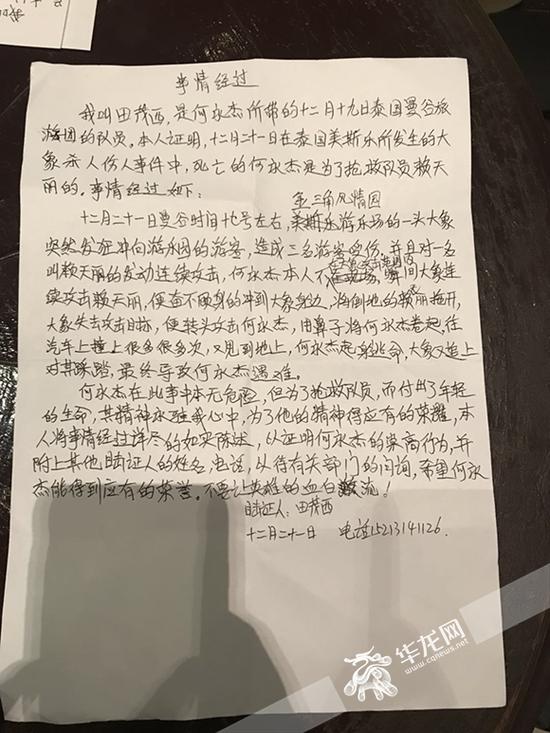 事情经过
我叫田茂西，是何永杰所带的十二月十九日泰国曼谷旅
游团的队员。本人证明，十二月二十一日在泰国美斯乐所发生的大
象杀人伤人事件中，死亡的何永杰是为了抢救队员赖天
丽的。事情经过如下：
金三角风情园
十二月二十一日曼谷时间十七号左右，美斯乐游乐场的一头大象
突然发狂冲向游乐园的游客，造成三名游客受伤，并且对一名
叫赖天丽的发动连续攻击，何永杰本人不在，瞬间大象连
续攻击赖天丽，便奋不顾身的冲到大象身边，将倒地的赖丽拖开，
大象失去攻击目标，便转头攻击何永杰，用鼻子将何永杰卷起，往
汽车上撞上很多很多次，又甩到地上，何永杰起身逃命，大象又追上
对其踩踏，最终导致何永杰遇难。
何永杰在此事中本无危险，但为了抢救队员，而付出了年轻
的生命，其精神永驻我心中，为了他的精神得应有的荣耀，本
人将事情经过详尽的如实陈述，以证明何永杰的崇高行为，并
附上其他目睹证人的姓名，电话，以待有关部门的问询，希望何永
杰能得到应有的荣誉。不要让英雄的血白流！
目睹证人：田茂西
十二月二十一日 电话15213141126.
华龙网
www.cqnews.net